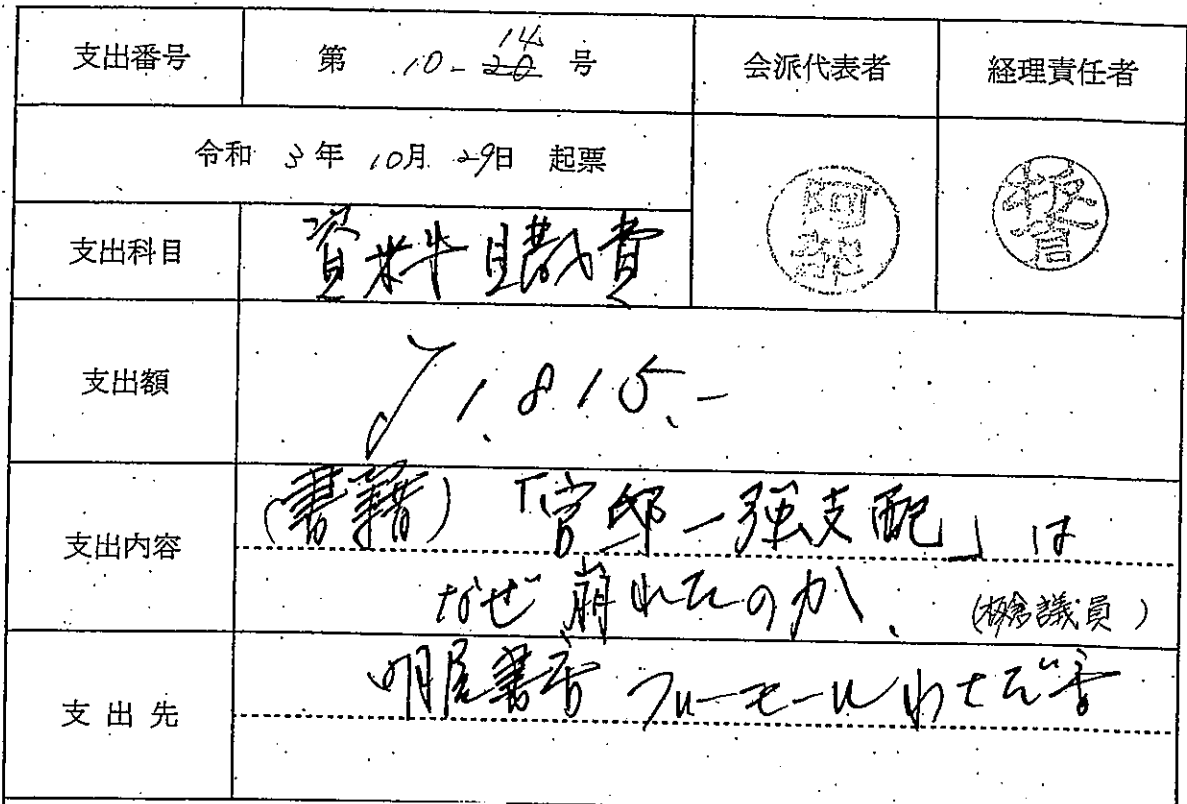 支出番号 第 10-14 20 号 会派代表者 経理責任者
令和 3年 10月 29日 起票
阿部
支出科目 資料購入費
支出額 ¥1,815.-
支出内容 (書籍)「官邸一強支配」は
なぜ崩れたのか、(板倉議員)
支出先 明屋書店 フジモールわさだ店